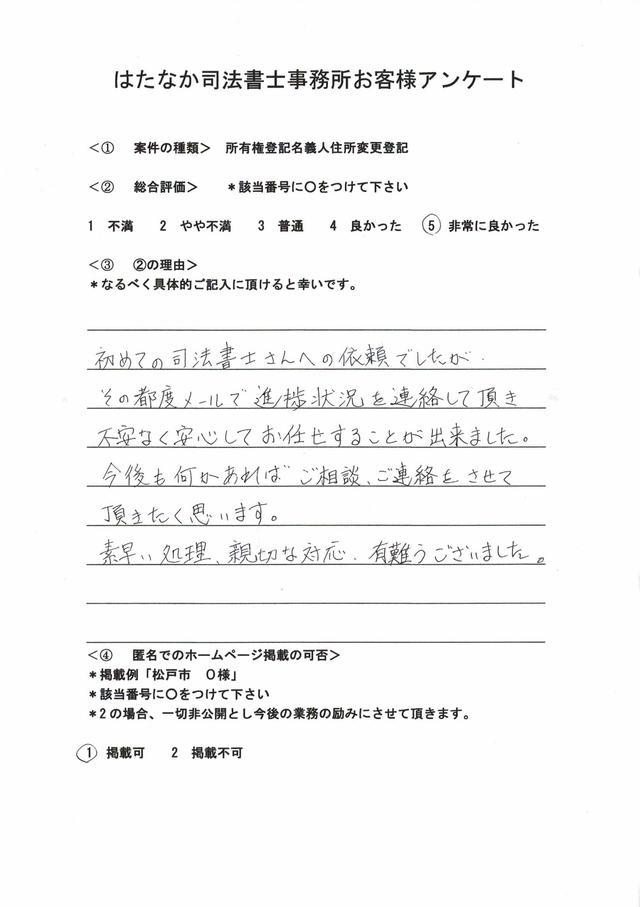 はたなか司法書士事務所お客様アンケート
＜①　案件の種類＞　所有権登記名義人住所変更登記
＜②　総合評価＞　＊該当番号に〇をつけて下さい
1　不満　2　やや不満　3　普通　4　良かった　5　非常に良かった
＜③　②の理由＞
＊なるべく具体的ご記入に頂けると幸いです。
初めての司法書士さんへの依頼でしたが、
その都度メールで進捗状況を連絡して頂き
不安なく安心してお任せすることが出来ました。
今後も何かあればご相談、ご連絡をさせて
頂きたく思います。
素早い処理、親切な対応、有難うございました。
＜④　匿名でのホームページ掲載の可否＞
＊掲載例「松戸市　O様」
＊該当番号に〇をつけて下さい
＊2の場合、一切非公開とし今後の業務の励みにさせて頂きます。
1　掲載可　2　掲載不可